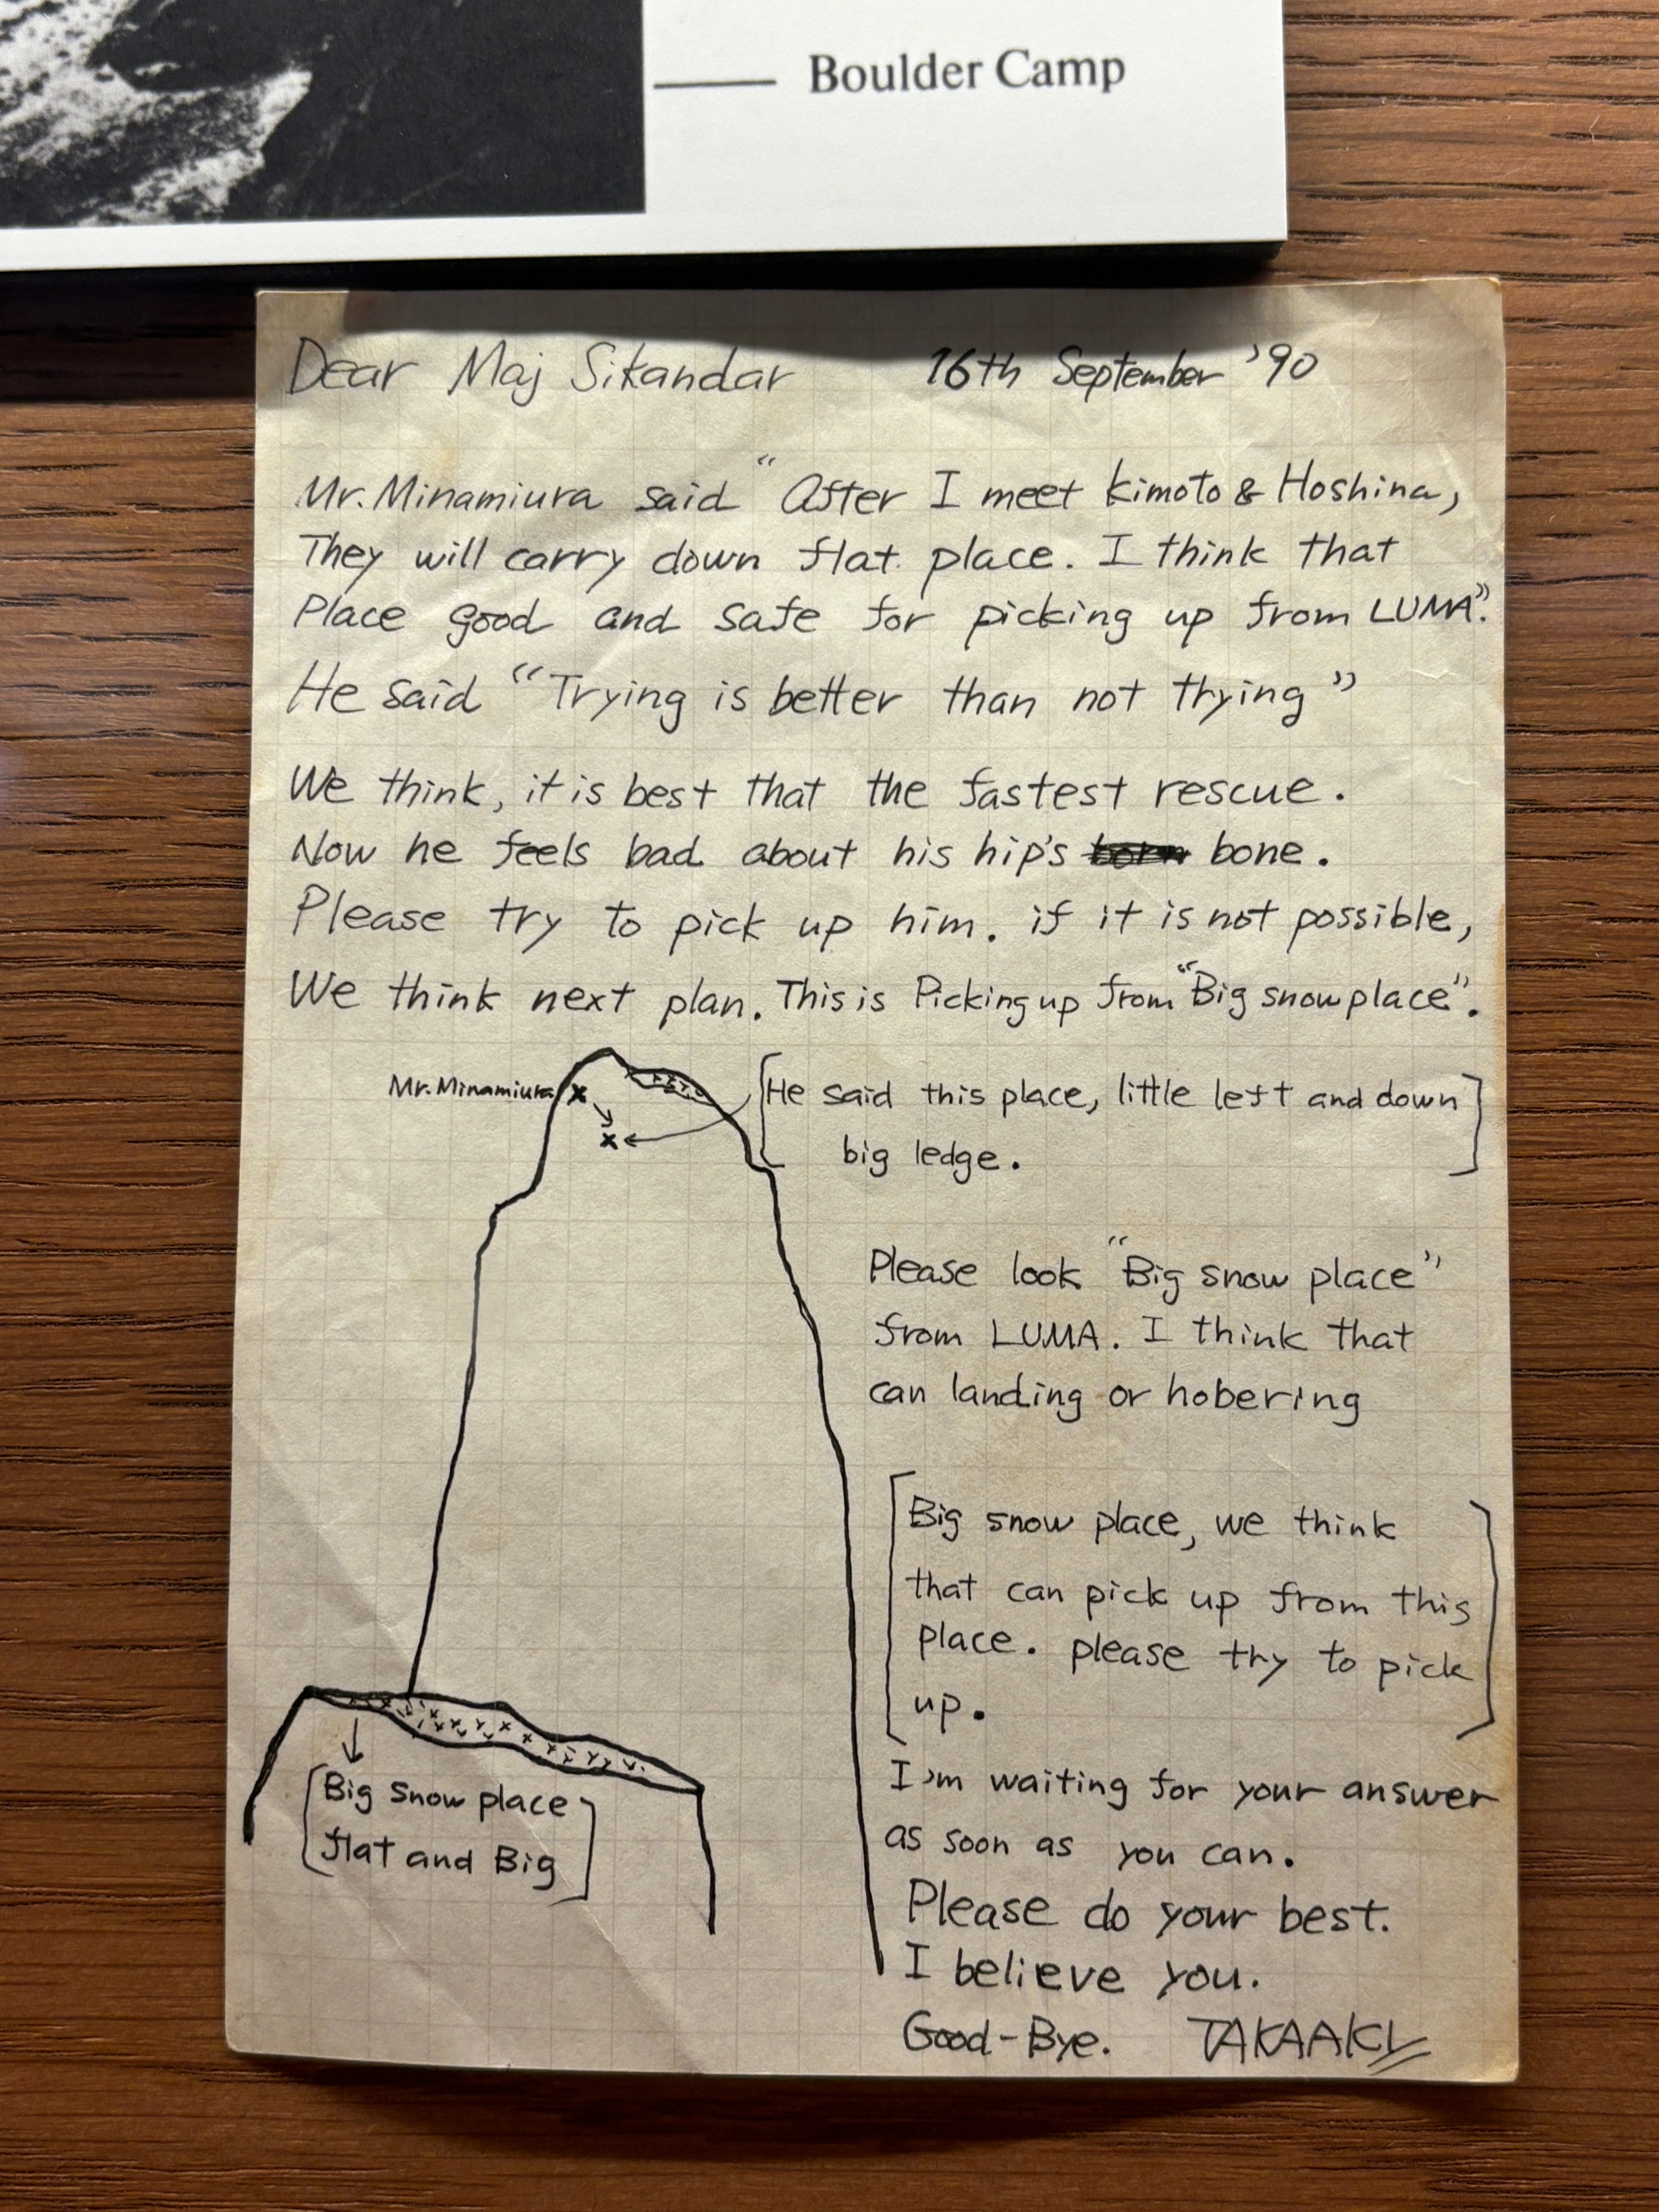 Boulder Camp
Dear Maj Sikandar 16th September '90
Mr. Minamiura said "After I meet kimoto & Hoshina,
They will carry down flat place. I think that
Place good and safe for picking up from LUMA".
He said "Trying is better than not trying"
We think, it is best that the fastest rescue.
Now he feels bad about his hip's born bone.
Please try to pick up him. if it is not possible,
We think next plan. This is Picking up from "Big snow place".
Mr. Minamiura
He said this place, little left and down
big ledge.
Please look "Big snow place"
from LUMA. I think that
can landing or hobering
Big snow place, we think
that can pick up from this
place. please try to pick
up.
Big Snow place
flat and Big
I'm waiting for your answer
as soon as you can.
Please do your best.
I believe you.
Good-Bye. TAKAAKI